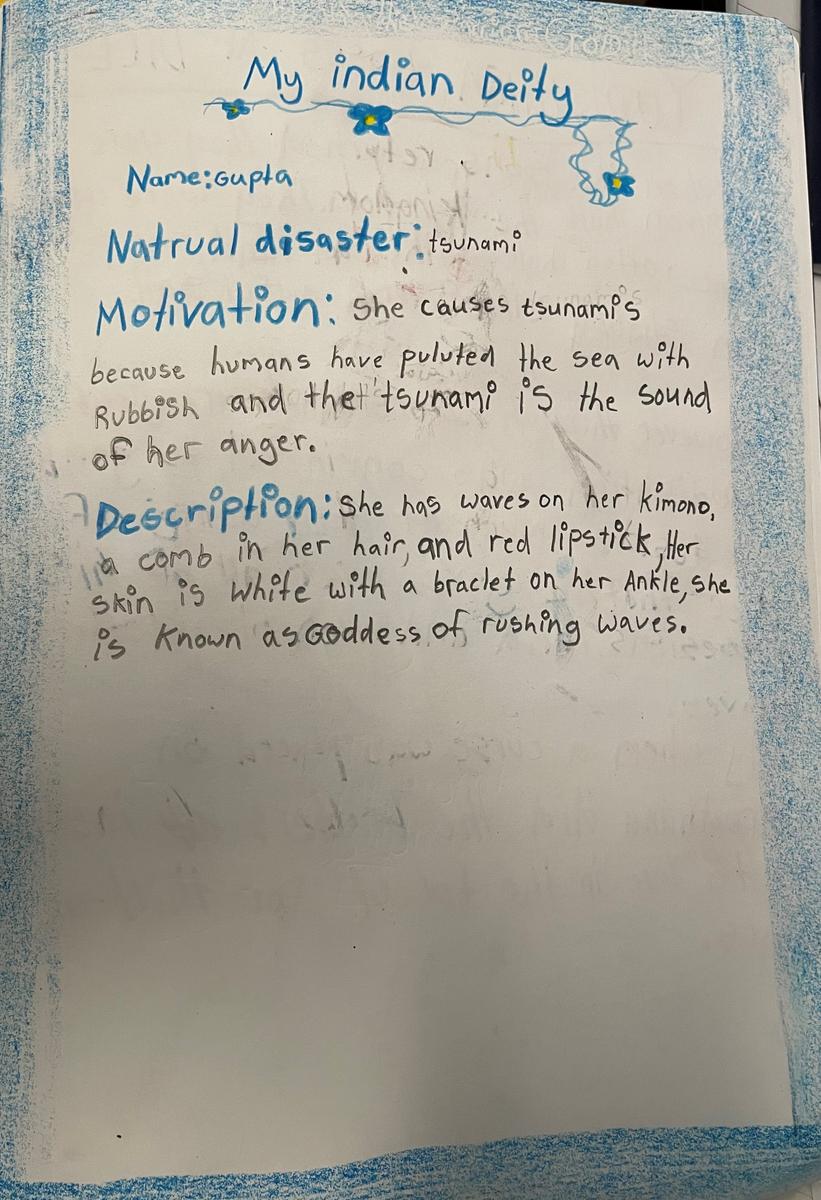 My indian Deity
Name:Gupta
Natrual disaster: tsunami
Motivation: She causes tsunami's
because humans have puluted the sea with
Rubbish and the tsunami is the sound
of her anger.
Description: She has waves on her kimono,
a comb in her hair, and red lipstick, Her
skin is white with a braclet on her Ankle, she
is known as Goddess of rushing waves.